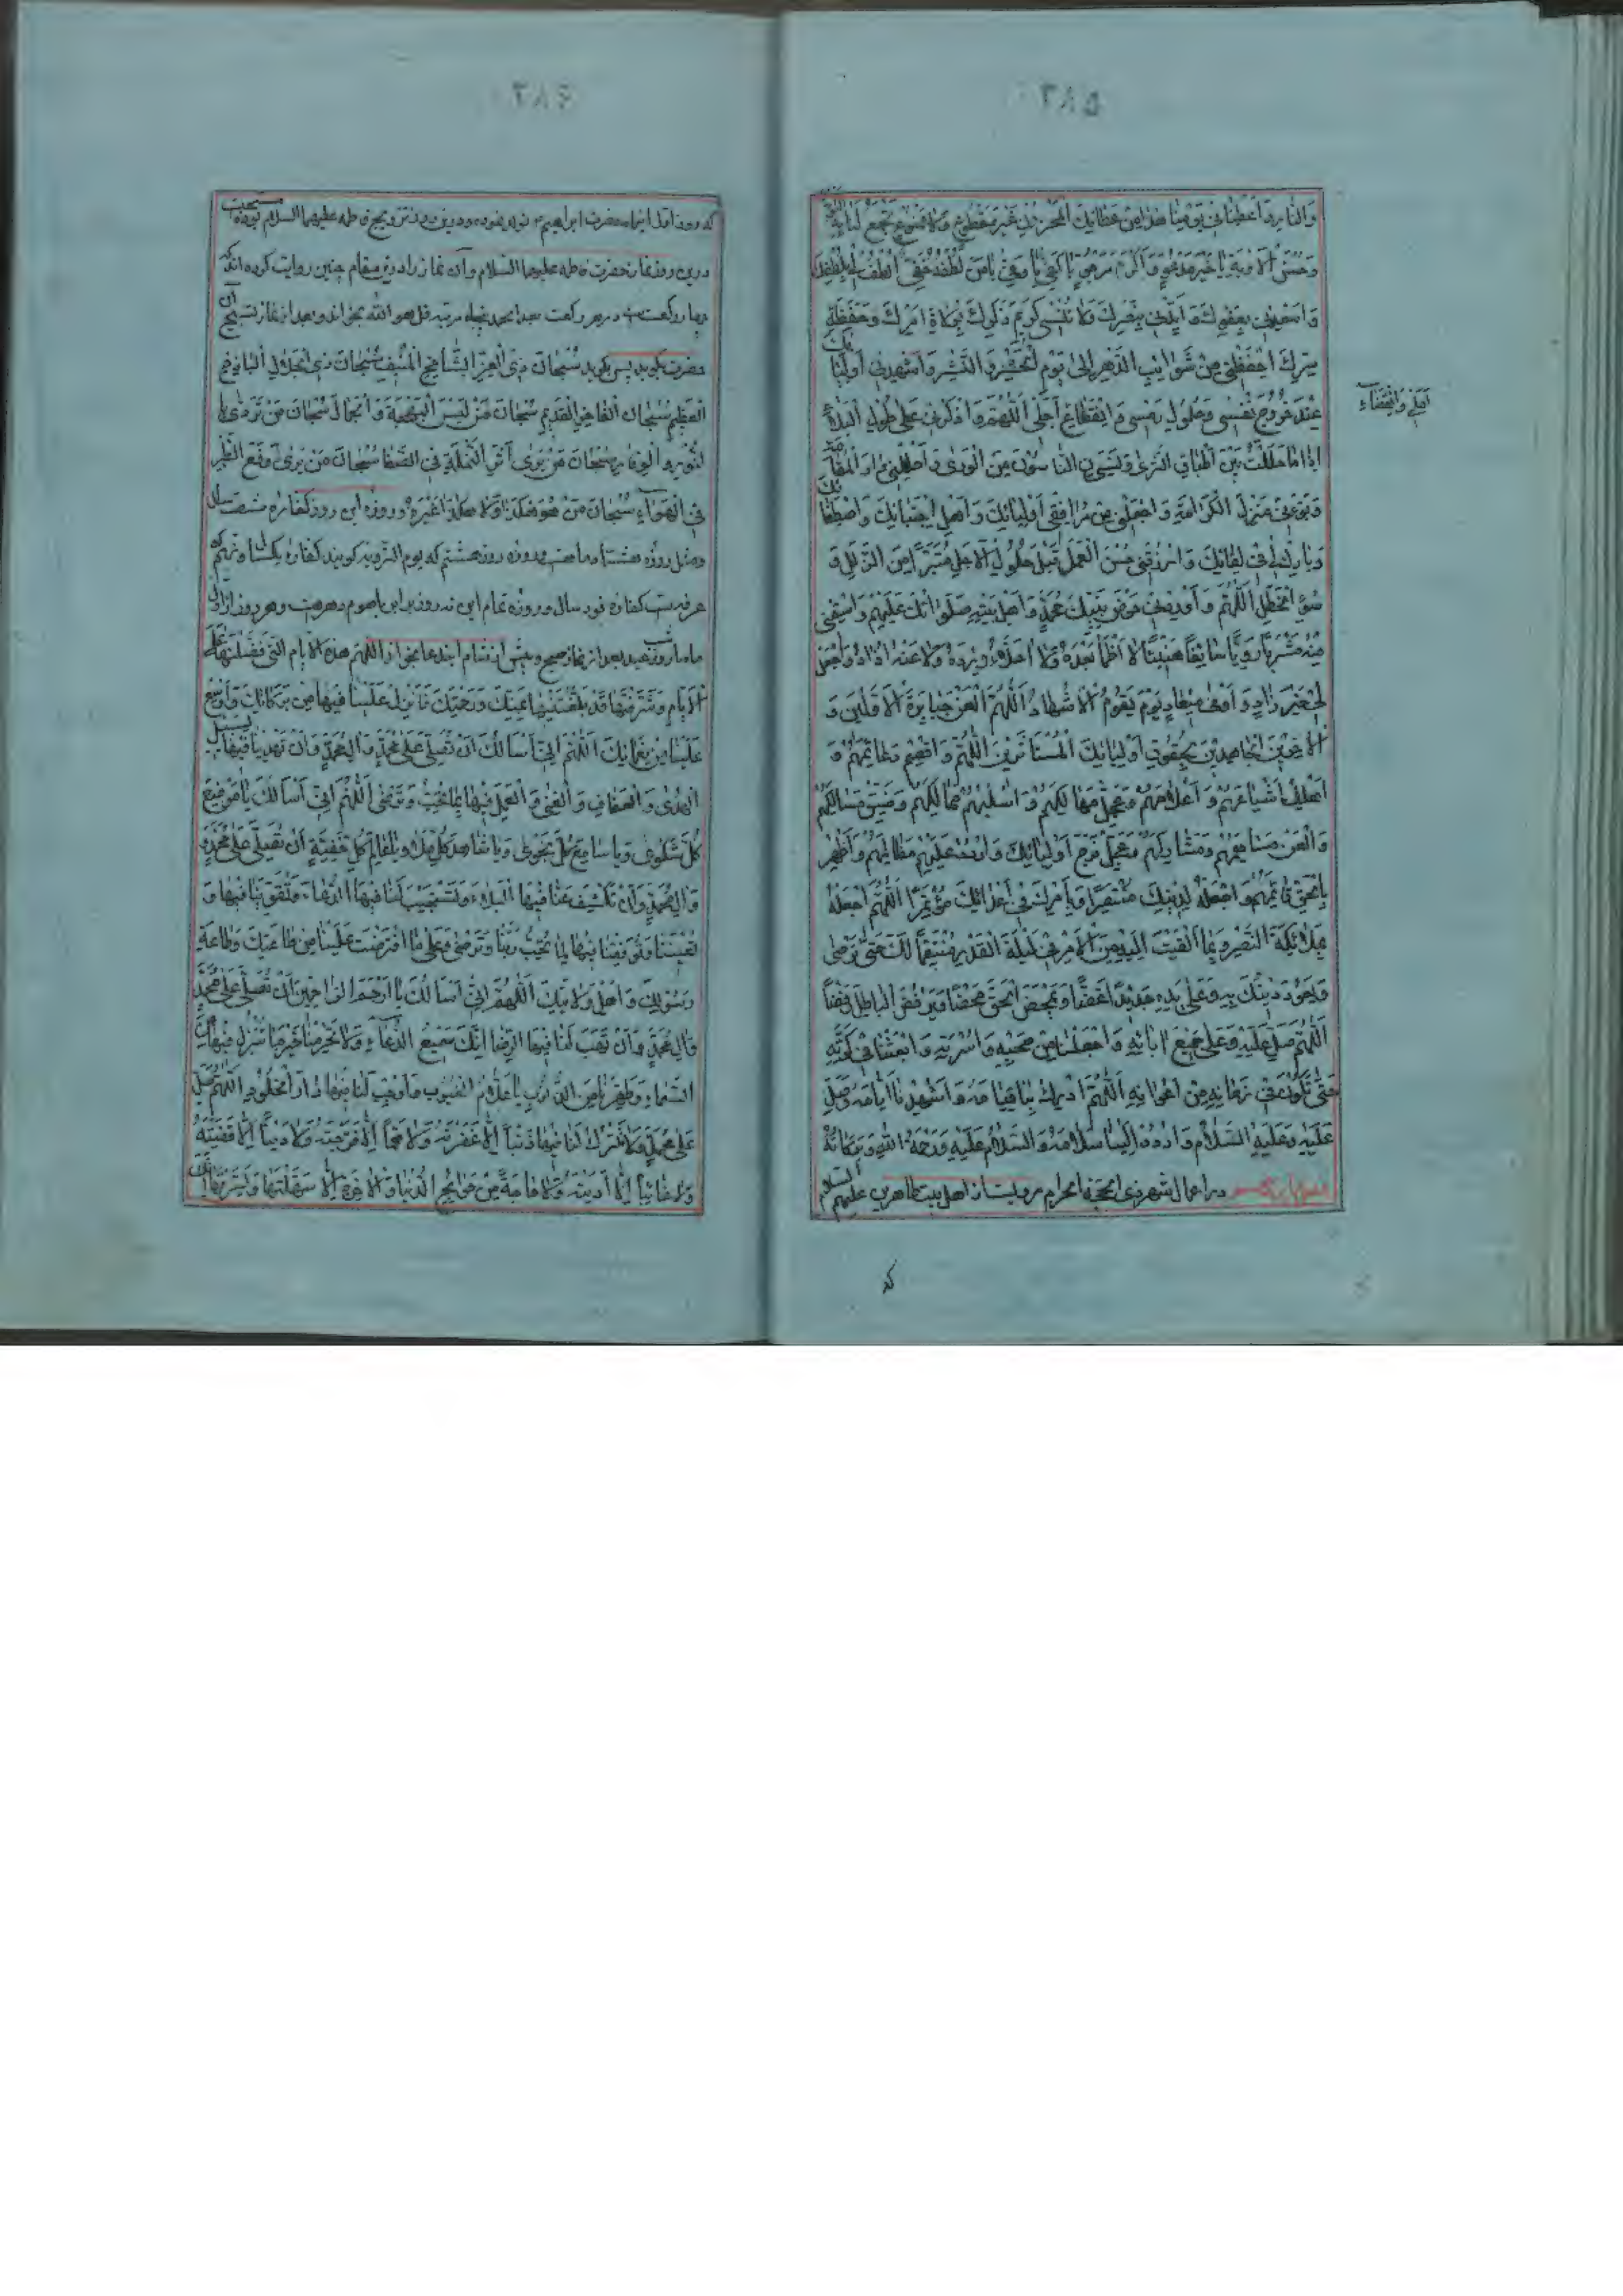 ٣٨٥
وَالنَّارِ وَ أَعْطِنَا فِي يَوْمِنَا هٰذَا مِنْ عَطَائِكَ الْمَخْزُونِ غَيْرَ مَقْطُوعٍ وَلَا مَمْنُوعٍ تَجْمَعُ لَنَا بِهِ التَّوْبَةَ
وَحُسْنَ الْأَوْبَةِ يَا خَيْرَ مَدْعُوٍّ وَ أَكْرَمَ مَرْجُوٍّ يَا كَفِيُّ يَا وَفِيُّ يَا مَنْ لُطْفُهُ خَفِيٌّ اُلْطُفْ لِي بِلُطْفِكَ
وَ أَسْعِدْنِي بِعَفْوِكَ وَ أَيِّدْنِي بِنَصْرِكَ وَلَا تُنْسِنِي كَرِيمَ ذِكْرِكَ بِوُلَاةِ أَمْرِكَ وَحَفَظَةِ
سِرِّكَ احْفَظْنِي مِنْ شَوَائِبِ الدَّهْرِ إِلَى يَوْمِ الْحَشْرِ وَالنَّشْرِ وَ أَشْهِدْنِي أَوْلِيَائَكَ
عِنْدَ خُرُوجِ نَفْسِي وَحُلُولِ رَمْسِي وَانْقِطَاعِ
أَمَلِي وَانْقِضَاءِ
أَجَلِي اَللّٰهُمَّ وَاذْكُرْنِي عَلَى طُولِ الْبِلَى
إِذَا حَلَلْتُ بَيْنَ أَطْبَاقِ الثَّرَى وَنَسِيَنِي النَّاسُونَ مِنَ الْوَرَى وَ أَحْلِلْنِي دَارَ الْمُقَامَةِ
وَبَوِّئْنِي مَنْزِلَ الْكَرَامَةِ وَاجْعَلْنِي مِنْ مُرَافِقِي أَوْلِيَائِكَ وَ أَهْلِ اجْتِبَائِكَ وَاصْطِفَائِكَ
وَبَارِكْ لِي فِي لِقَائِكَ وَارْزُقْنِي حُسْنَ الْعَمَلِ قَبْلَ حُلُولِ الْأَجَلِ مُتَبَرِّئًا مِنَ الزَّلَلِ وَ
سُوءِ الْخَطَلِ اَللّٰهُمَّ وَ أَوْرِدْنِي حَوْضَ نَبِيِّكَ مُحَمَّدٍ وَ أَهْلِ بَيْتِهِ صَلَوَاتُكَ عَلَيْهِمْ وَاسْقِنِي
مِنْهُ مَشْرَبًا رَوِيًّا سَائِغًا هَنِيئًا لَا أَظْمَأُ بَعْدَهُ وَلَا أُحَلَّأُ وِرْدَهُ وَلَا عَنْهُ أُذَادُ وَاجْعَلْهُ
لِي خَيْرَ زَادٍ وَ أَوْفَى مِيعَادٍ يَوْمَ يَقُومُ الْأَشْهَادُ اَللّٰهُمَّ الْعَنْ جَبَابِرَةَ الْأَوَّلِينَ وَ
الْآخِرِينَ الْجَاحِدِينَ بِحُقُوقِ أَوْلِيَائِكَ الْمُسْتَأْثِرِينَ اَللّٰهُمَّ وَاقْصِمْ دَعَائِمَهُمْ وَ
أَهْلِكْ أَشْيَاعَهُمْ وَ أَعْلَامَهُمْ وَعَجِّلْ مَهَالِكَهُمْ وَاسْلُبْهُمْ مَمَالِكَهُمْ وَضَيِّقْ مَسَالِكَهُمْ
وَالْعَنْ مُسَاهِمَهُمْ وَمُشَارِكَهُمْ وَعَجِّلْ فَرَجَ أَوْلِيَائِكَ وَارْدُدْ عَلَيْهِمْ مَظَالِمَهُمْ وَ أَظْهِرْ
بِالْحَقِّ قَائِمَهُمْ وَاجْعَلْهُ لِدِينِكَ مُنْتَصِرًا وَبِأَمْرِكَ فِي أَعْدَائِكَ مُؤْتَمِرًا اَللّٰهُمَّ احْفُفْهُ
بِمَلَائِكَةِ النَّصْرِ وَبِمَا أَلْقَيْتَ إِلَيْهِ مِنَ الْأَمْرِ فِي لَيْلَةِ الْقَدْرِ مُنْتَقِمًا لَكَ حَتَّى تَرْضَى
وَيَعُودَ دِينُكَ بِهِ وَعَلَى يَدِهِ جَدِيدًا غَضًّا وَيَمْحَضَ الْحَقَّ مَحْضًا وَيَرْفُضَ الْبَاطِلَ رَفْضًا
اَللّٰهُمَّ صَلِّ عَلَيْهِ وَعَلَى جَمِيعِ آبَائِهِ وَاجْعَلْنَا مِنْ صَحْبِهِ وَ أُسْرَتِهِ وَابْعَثْنَا فِي كَرَّتِهِ
حَتَّى نَكُونَ فِي زَمَانِهِ مِنْ أَعْوَانِهِ اَللّٰهُمَّ أَدْرِكْ بِنَا قِيَامَهُ وَ أَشْهِدْنَا أَيَّامَهُ وَصَلِّ
عَلَيْهِ وَعَلَيْهِ السَّلَامُ وَارْدُدْ إِلَيْنَا سَلَامَهُ وَالسَّلَامُ عَلَيْهِ وَرَحْمَةُ اللّٰهِ وَبَرَكَاتُهُ
در اعمال شهر ذى الحجة الحرام مرويست از اهل بيت طاهرين عليهم السلام
كه
٣٨٦
كه روز اول اين ماه حضرت ابراهيم و درين روز تزويج فاطمه عليهما السلام بوده مستحب
درين روز نماز حضرت فاطمه عليها السلام و آن نماز را درين مقام چنين روايت كرده اند كه
چهار ركعت در هر ركعت بعد از حمد پنجاه مرتبه قل هو الله بخواند و بعد از نماز تسبيح آن
حضرت بگويد پس بگويد سُبْحَانَ ذِي الْعِزِّ الشَّامِخِ الْمُنِيفِ سُبْحَانَ ذِي الْجَلَالِ الْبَاذِخِ
الْعَظِيمِ سُبْحَانَ الْفَاخِرِ الْقَدِيمِ سُبْحَانَ مَنْ لَبِسَ الْبَهْجَةَ وَالْجَمَالَ سُبْحَانَ مَنْ تَرَدَّى
بِالنُّورِ وَالْوَقَارِ سُبْحَانَ مَنْ يَرَى أَثَرَ النَّمْلَةِ فِي الصَّفَا سُبْحَانَ مَنْ يَرَى وَقْعَ الطَّيْرِ
فِي الْهَوَاءِ سُبْحَانَ مَنْ هُوَ هٰكَذَا وَلَا هٰكَذَا غَيْرُهُ و روزه اين روز كفاره شصت سال
و مثل روزه هشتاد ماهست و روزه روز هشتم كه يوم الترويه گويند كفاره يكسال و نهم كه
عرفه است كفاره نود سال و روزه تمام اين نه روز برابر با صوم دهر است و هر روز از اول
ماه تا روز عيد بعد از نماز صبح و پيش از شام اين دعا بخواند اَللّٰهُمَّ هٰذِهِ الْأَيَّامُ الَّتِي فَضَّلْتَهَا عَلَى
الْأَيَّامِ وَشَرَّفْتَهَا قَدْ بَلَّغْتَنِيهَا بِمَنِّكَ وَرَحْمَتِكَ فَأَنْزِلْ عَلَيْنَا فِيهَا مِنْ بَرَكَاتِكَ وَ أَوْسِعْ
عَلَيْنَا مِنْ نَعْمَائِكَ اَللّٰهُمَّ إِنِّي أَسْأَلُكَ أَنْ تُصَلِّيَ عَلَى مُحَمَّدٍ وَ آلِ مُحَمَّدٍ وَ أَنْ تَهْدِيَنَا فِيهَا لِسَبِيلِ
الْهُدَى وَالْعَفَافِ وَالْغِنَى وَالْعَمَلِ فِيهَا بِمَا تُحِبُّ وَتَرْضَى اَللّٰهُمَّ إِنِّي أَسْأَلُكَ يَا مَوْضِعَ
كُلِّ شَكْوَى وَيَا سَامِعَ كُلِّ نَجْوَى وَيَا شَاهِدَ كُلِّ مَلَإٍ وَيَا عَالِمَ كُلِّ خَفِيَّةٍ أَنْ تُصَلِّيَ عَلَى مُحَمَّدٍ
وَ آلِ مُحَمَّدٍ وَ أَنْ تَكْشِفَ عَنَّا فِيهَا الْبَلَاءَ وَتَسْتَجِيبَ لَنَا فِيهَا الدُّعَاءَ وَتُقَوِّيَنَا فِيهَا وَ
تُعِينَنَا وَتُوَفِّقَنَا فِيهَا لِمَا تُحِبُّ رَبَّنَا وَتَرْضَى وَعَلَى مَا افْتَرَضْتَ عَلَيْنَا مِنْ طَاعَتِكَ وَطَاعَةِ
رَسُولِكَ وَ أَهْلِ وَلَايَتِكَ اَللّٰهُمَّ إِنِّي أَسْأَلُكَ يَا أَرْحَمَ الرَّاحِمِينَ أَنْ تُصَلِّيَ عَلَى مُحَمَّدٍ
وَ آلِ مُحَمَّدٍ وَ أَنْ تَهَبَ لَنَا فِيهَا الرِّضَا إِنَّكَ سَمِيعُ الدُّعَاءِ وَلَا تَحْرِمْنَا خَيْرَ مَا تُنْزِلُ فِيهَا مِنَ
السَّمَاءِ وَطَهِّرْنَا مِنَ الذُّنُوبِ يَا عَلَّامَ الْغُيُوبِ وَ أَوْجِبْ لَنَا فِيهَا دَارَ الْخُلُودِ اَللّٰهُمَّ صَلِّ
عَلَى مُحَمَّدٍ وَلَا تَتْرُكْ لَنَا فِيهَا ذَنْبًا إِلَّا غَفَرْتَهُ وَلَا هَمًّا إِلَّا فَرَّجْتَهُ وَلَا دَيْنًا إِلَّا قَضَيْتَهُ
وَلَا غَائِبًا إِلَّا أَدَّيْتَهُ وَلَا حَاجَةً مِنْ حَوَائِجِ الدُّنْيَا وَالْآخِرَةِ إِلَّا سَهَّلْتَهَا وَيَسَّرْتَهَا إِنَّكَ